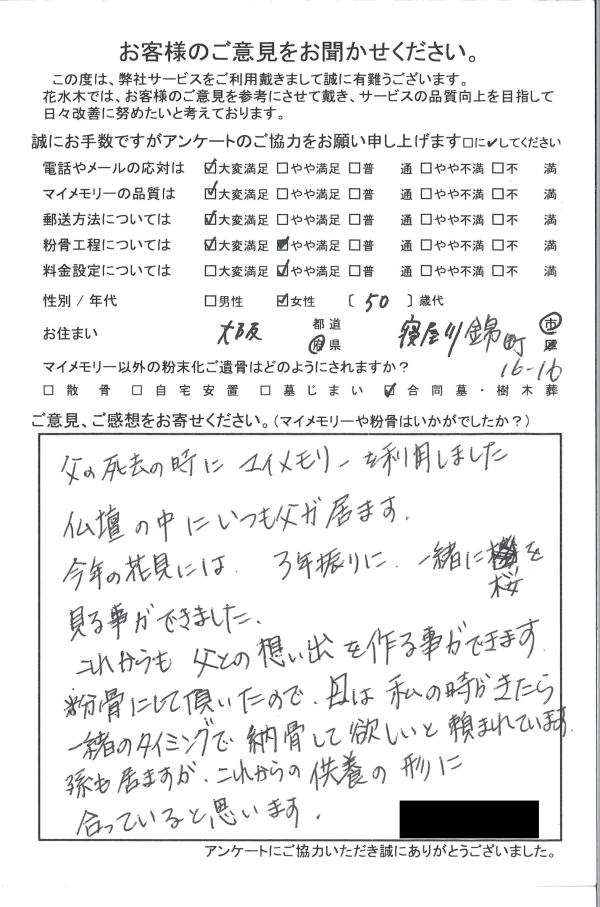 お客様のご意見をお聞かせください。
この度は、弊社サービスをご利用戴きまして誠に有難うございます。
花水木では、お客様のご意見を参考にさせて戴き、サービスの品質向上を目指して
日々改善に努めたいと考えております。
誠にお手数ですがアンケートのご協力をお願い申し上げます□に✓してください
電話やメールの応対は ☑大変満足 □やや満足 □普 通 □やや不満 □不 満
マイメモリーの品質は ☑大変満足 □やや満足 □普 通 □やや不満 □不 満
郵送方法については ☑大変満足 □やや満足 □普 通 □やや不満 □不 満
粉骨工程については ☑大変満足 ☑やや満足 □普 通 □やや不満 □不 満
料金設定については □大変満足 ☑やや満足 □普 通 □やや不満 □不 満
性別 / 年代 □男性 ☑女性 〔 50 〕歳代
お住まい 大阪 都道府県 寝屋川錦町 市区
16-16
マイメモリー以外の粉末化ご遺骨はどのようにされますか?
□散骨 □自宅安置 □墓じまい ☑合同墓・樹木葬
ご意見、ご感想をお寄せください。(マイメモリーや粉骨はいかがでしたか?)
父の死去の時に マイメモリーを利用しました
仏壇の中にいつも父が居ます.
今年の花見には、3年振りに、一緒に桜を
見る事ができました.
これからも 父との想い出を作る事ができます.
粉骨にして頂いたので、母は 私の時がきたら
一緒のタイミングで 納骨して欲しいと 頼まれています.
孫も居ますが、これからの供養の形に
合っていると思います.
アンケートにご協力いただき誠にありがとうございました。